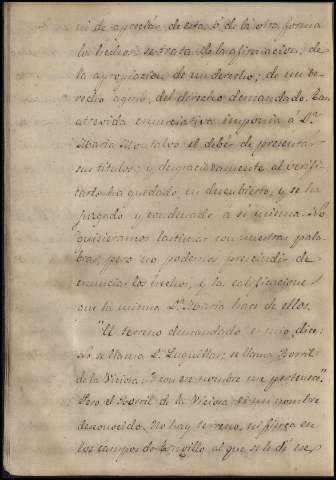 ni de apreciar de esta, ó de la otra forma
los hechos; se trata de la afirmacion, de
la apropiacion de un derecho; de un de-
recho ageno, del derecho demandado. Tan
atrevida enunciativa imponia á Dª
Maria Montalvo el deber de presentar
sus titulos; y desgraciadamente al verifi-
carlo ha quedado en descubierto, y se ha
juzgado y condenado a si misma. No
quisieramos lastimar con nuestras pala-
bras, pero no podemos prescindir de
enunciar los hechos, y la calificacion
que la misma Dª Maria hace de ellos.
"El terreno demandado es mio, dice:
se llama Luquillar, se llama
de la Viciosa, y con ese nombre me pertenece."
Pero el de la Viciosa es un nombre
desconocido. No hay terreno, ni finca en
los campos de al que se le dé ese